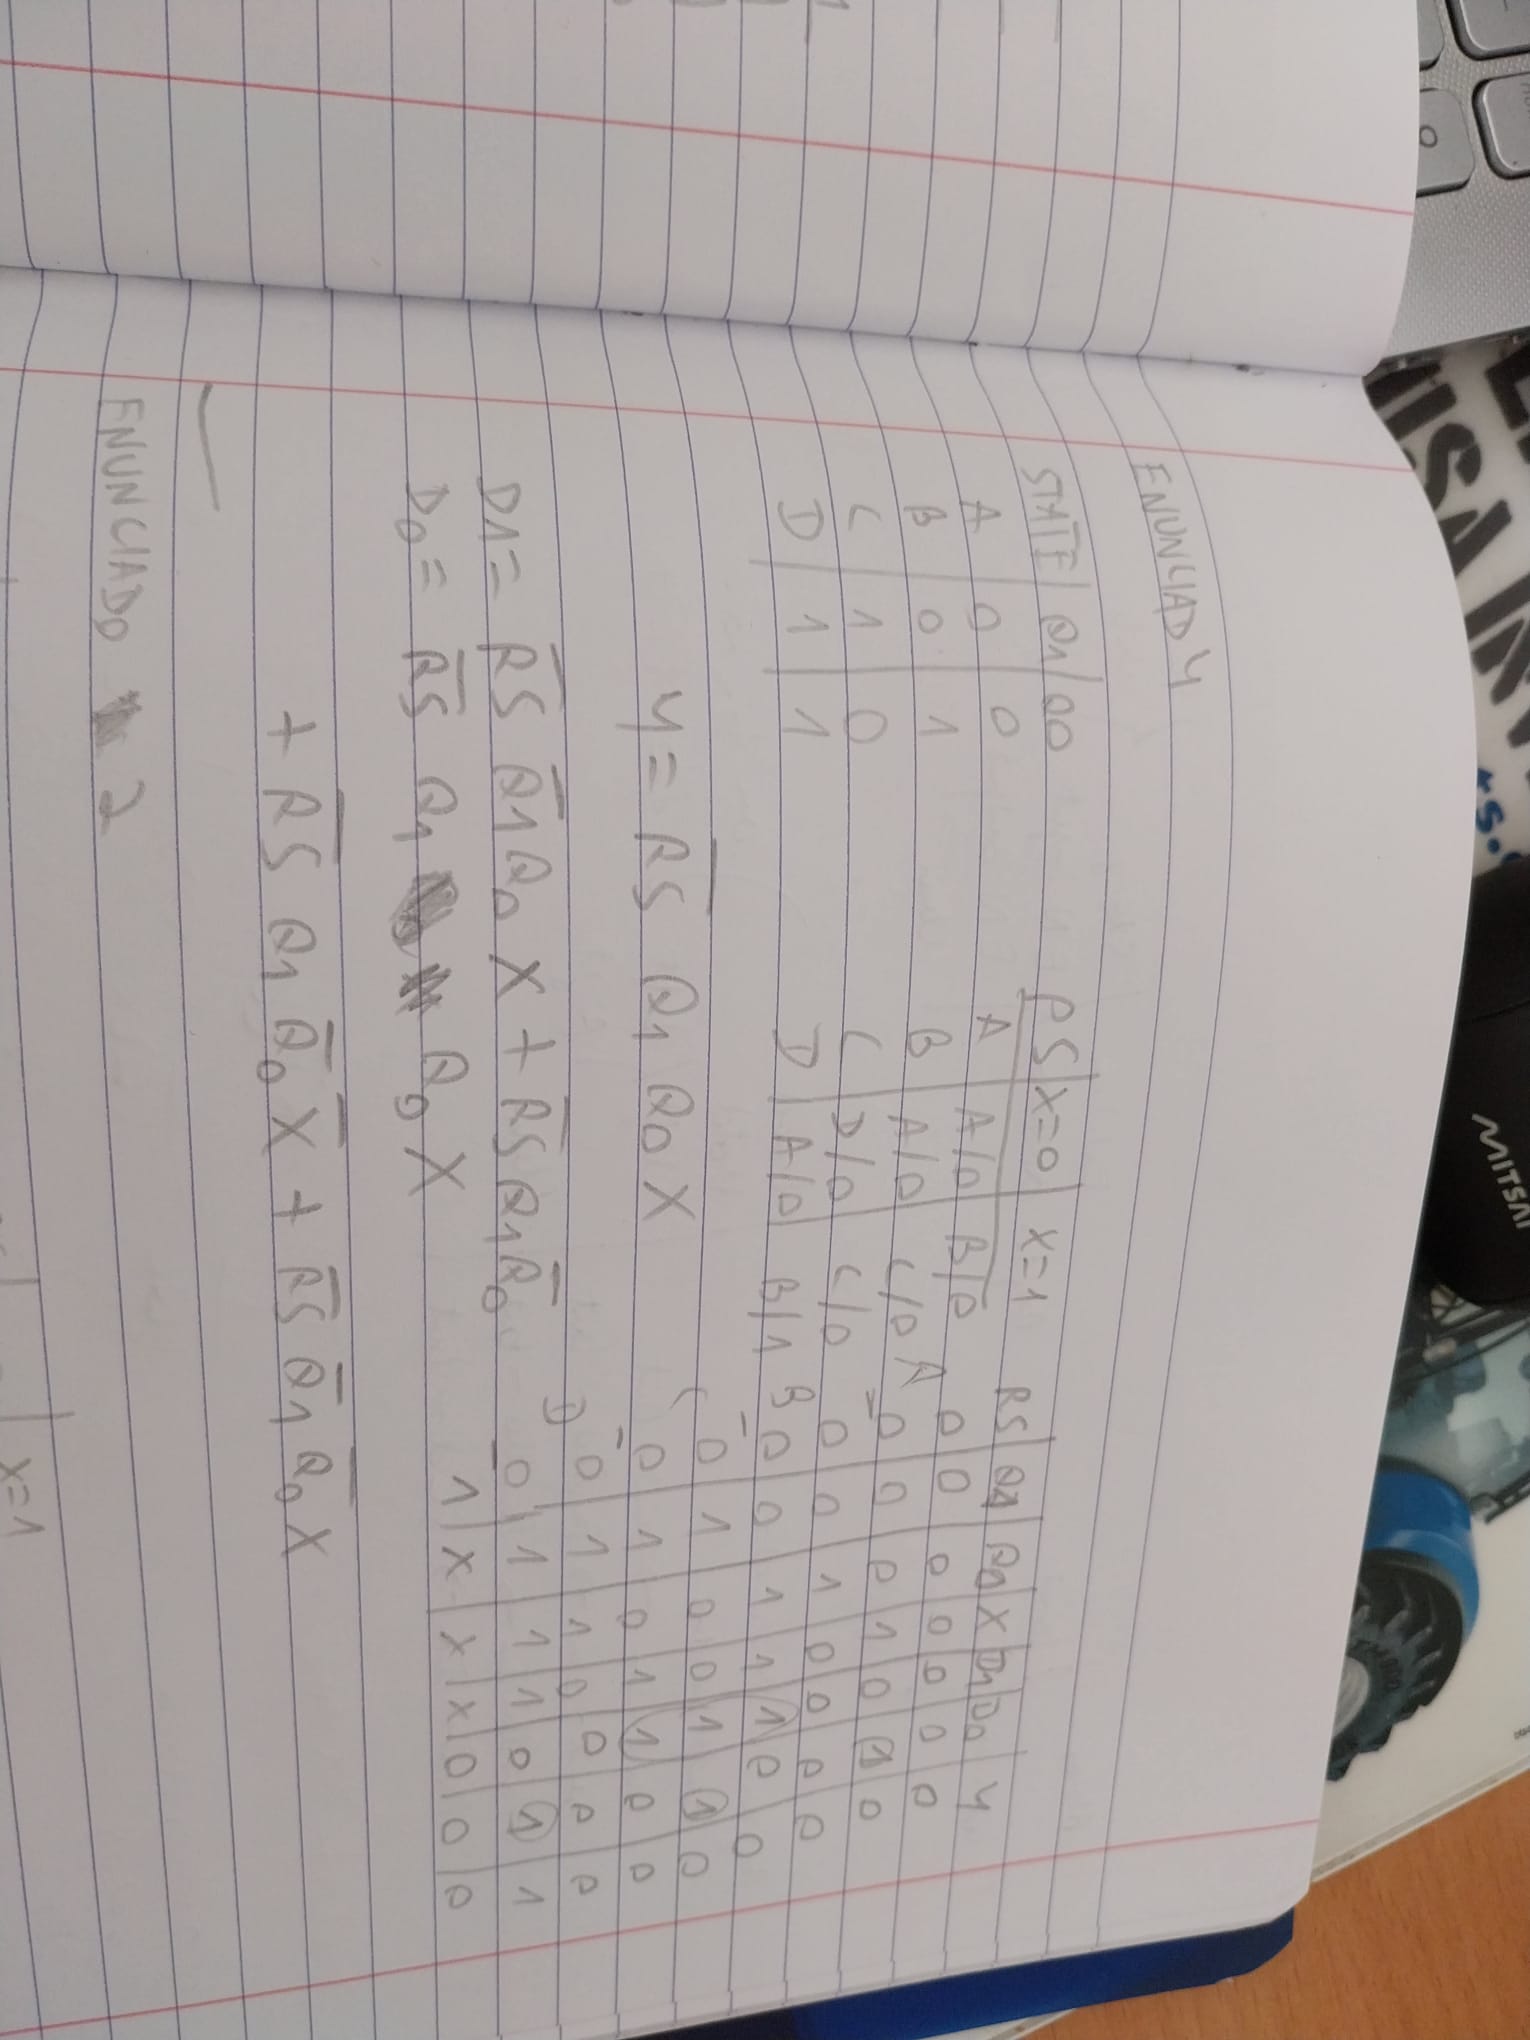 MITSAI
ENUNCIAD 4
STATE Q1 Q0
A 0 0
B 0 1
C 1 0
D 1 1
PS X=0 X=1
A A/0 B/0
B A/0 C/0
C D/0 C/0
D A/0 B/1
RS Q1 Q0 X D1 D0 Y
A 0 0 0 0 0 0 0
0 0 0 1 0 1 0
B 0 0 1 0 0 0 0
0 0 1 1 1 0 0
C 0 1 0 0 1 1 0
0 1 0 1 1 0 0
D 0 1 1 0 0 0 0
0 1 1 1 0 1 1
1 X X X 0 0 0
Y = R̅S̅ Q1 Q0 X
D1 = R̅S̅ Q̅1 Q0 X + R̅S̅ Q1 Q̅0
D0 = R̅S̅ Q1 Q0 X
+ R̅S̅ Q1 Q̅0 X̅ + R̅S̅ Q̅1 Q̅0 X
ENUNCIADO 2
X=1